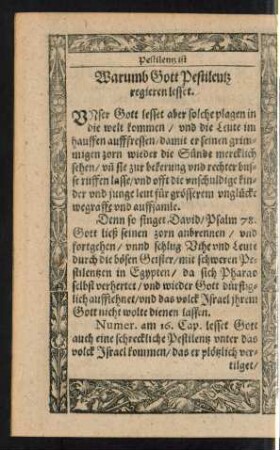 Pestilentz ist
Warumb Gott Pestilentz
regieren lesset.
UNser Gott lesset aber solche plagen in
die welt kommen / vnd die Leute im
hauffen aufffressen / damit er seinen grim-
migen zorn wieder die Sünde mercklich
sehen / vñ sie zur bekerung vnd rechter bus-
se ruffen lasse / vnd offt die vnschuldige kin-
der vnd junge leut für grösserem vnglücke
wegraffe vnd auffsamle.
Denn so singet David / Psalm 78.
Gott ließ seinen zorn anbrennen / vnd
fortgehen / vnnd schlug Vihe vnd Leute
durch die bösen Geister / mit schweren Pe-
stilentzen in Egypten / da sich Pharao
selbst verhertet / vnd wieder Gott
aufflehnet / vnd das volck Israel jhrem
Gott nicht wolte dienen lassen.
Numer. am 16. Cap. lesset Gott
auch eine schreckliche Pestilentz vnter das
volck Israel kommen / das er plötzlich ver-
tilget /